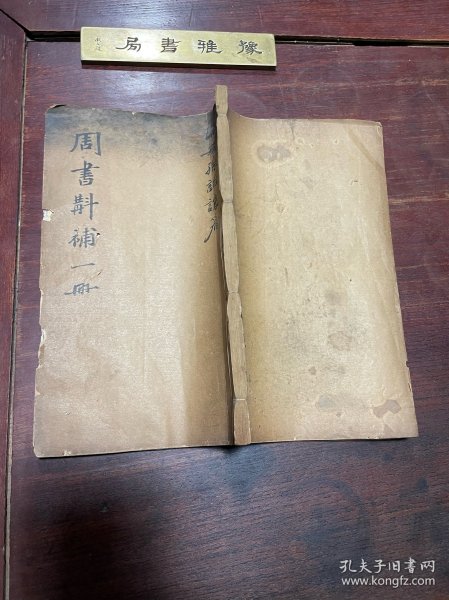 局書雅豫
周書斠補一冊
孔夫子旧书网
www.kongfz.com